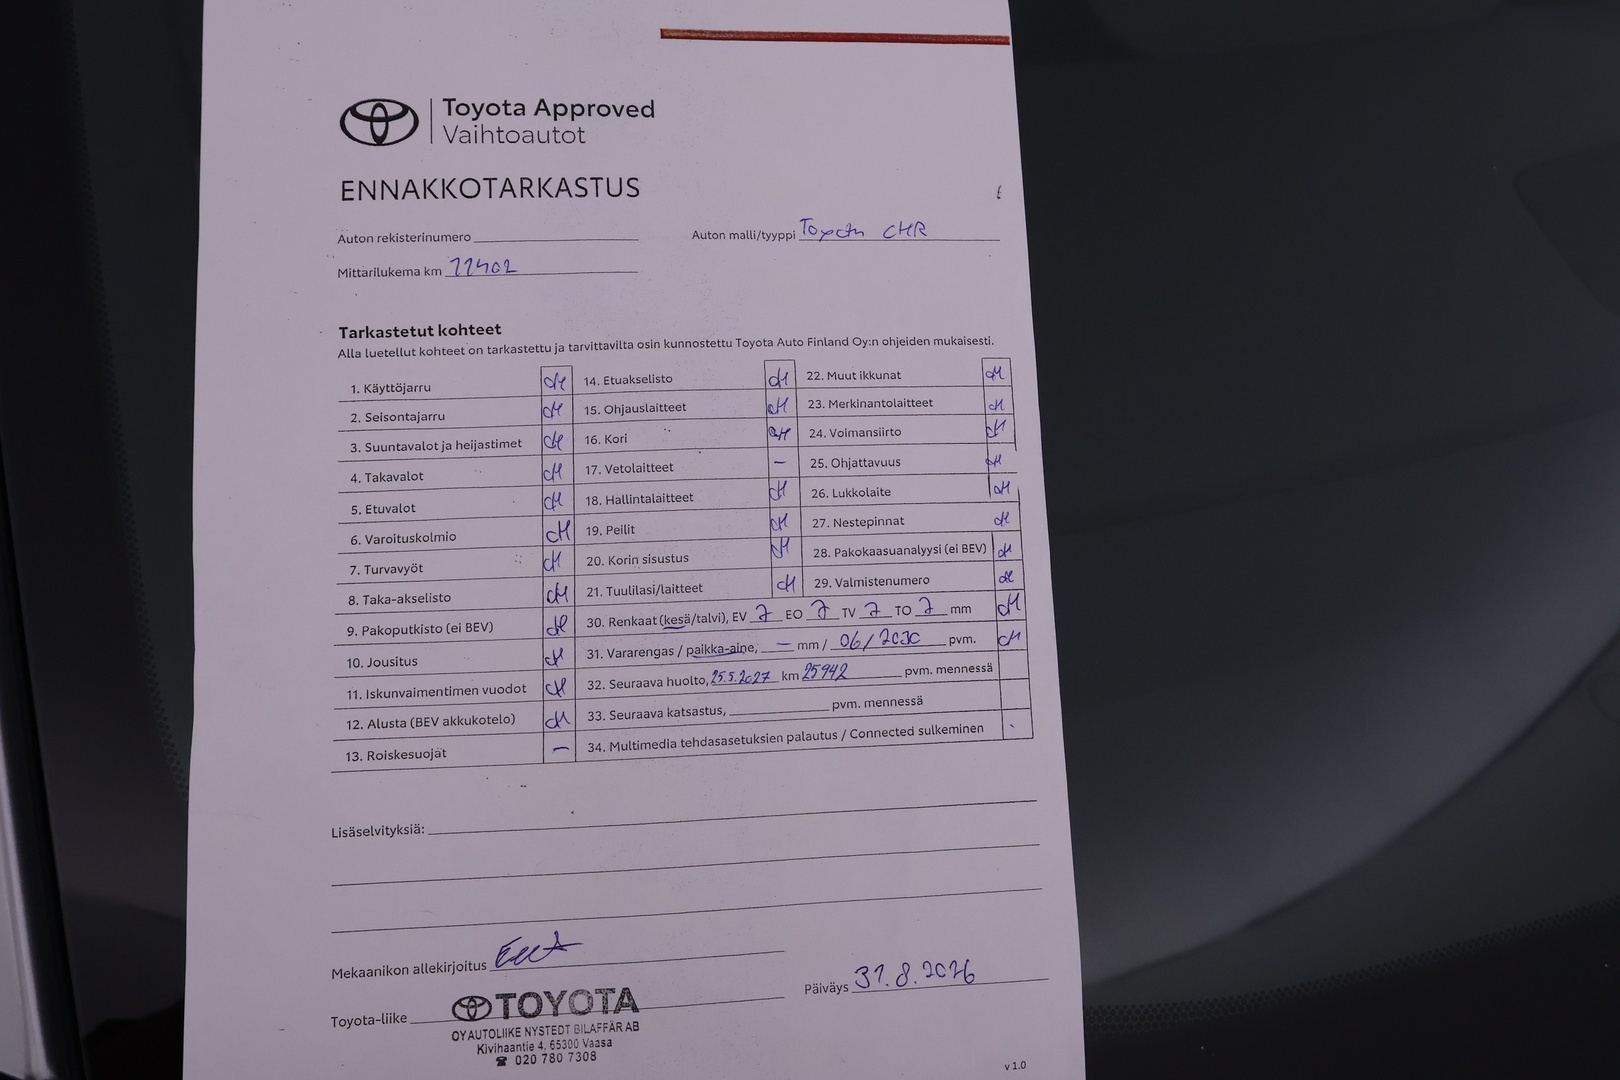 Toyota Approved
Vaihtoautot
ENNAKKOTARKASTUS
Auton rekisterinumero
Auton malli/tyyppi Toyota CHR
Mittarilukema km 11402
Tarkastetut kohteet
Alla luetellut kohteet on tarkastettu ja tarvittavilta osin kunnostettu Toyota Auto Finland Oy:n ohjeiden mukaisesti.
1. Käyttöjarru
2. Seisontajarru
3. Suuntavalot ja heijastimet
4. Takavalot
5. Etuvalot
6. Varoituskolmio
7. Turvavyöt
8. Taka-akselisto
9. Pakoputkisto (ei BEV)
10. Jousitus
11. Iskunvaimentimen vuodot
12. Alusta (BEV akkukotelo)
13. Roiskesuojat –
14. Etuakselisto
15. Ohjauslaitteet
16. Kori
17. Vetolaitteet –
18. Hallintalaitteet
19. Peilit
20. Korin sisustus
21. Tuulilasi/laitteet
22. Muut ikkunat
23. Merkinantolaitteet
24. Voimansiirto
25. Ohjattavuus
26. Lukkolaite
27. Nestepinnat
28. Pakokaasuanalyysi (ei BEV)
29. Valmistenumero
30. Renkaat (kesä/talvi), EV 7 EO 7 TV 7 TO 7 mm
31. Vararengas / paikka-aine, – mm / 06/2030 pvm.
32. Seuraava huolto, 25.5.2027 km 25942 pvm. mennessä
33. Seuraava katsastus, pvm. mennessä
34. Multimedia tehdasasetuksien palautus / Connected sulkeminen
Lisäselvityksiä:
Mekaanikon allekirjoitus
Päiväys 31.8.2026
Toyota-liike
TOYOTA
OY AUTOLIIKE NYSTEDT BILAFFÄR AB
Kivihaantie 4, 65300 Vaasa
☎ 020 780 7308
v 1.0